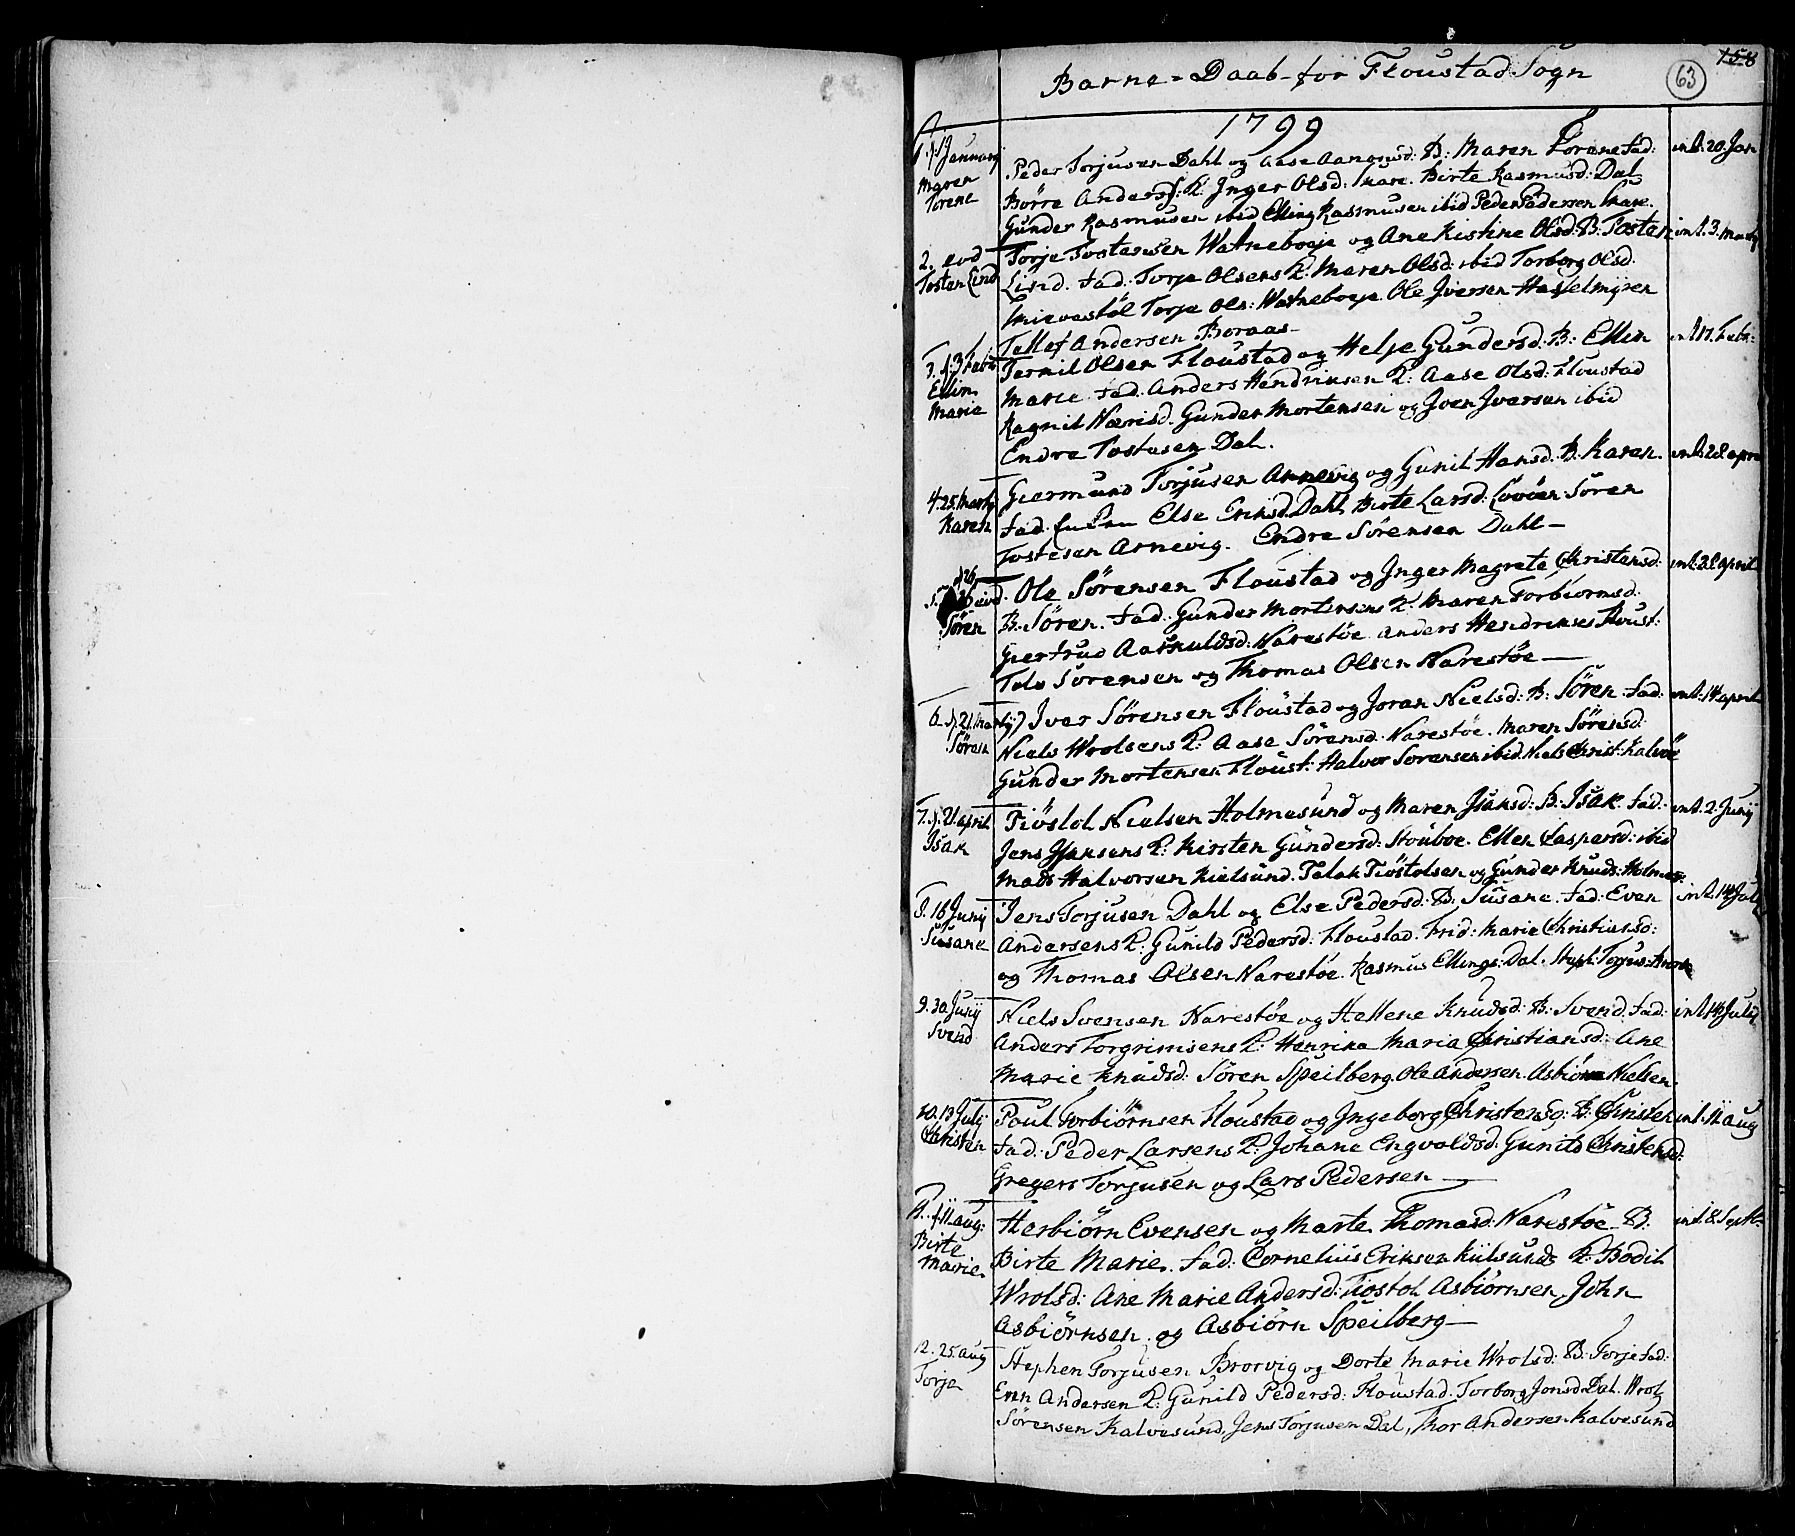 158
63
Barne-Daab for Floustad Sogn
1799
1. d. 1 January
Maren
Torene
Peder Torjusen Dahl og Aase Aanonsd: B: Maren Torene fad:
Börre Anders: K: Inger Olsd: Skare. Birte Rasmusd: Dal
Gunder Rasmusen ibid Elling Rasmusen ibid Peder Pedersen Skare.
int. 20. Jan
2. eod
Tosten Lind
Torje Tostensen Watneboeje og Ane Kistine Olsd: B. Tosten
Lind. fad: Torje Olsens K: Maren Olsd: ibid Torborg Olsd:
Torje Ols: Watneboeje. Ole Iversen Hasselmyren
Tellef Andersen Boraas
int. 3. Martj
3. d. 3 Febr
Ellin
Marie
Ternil Olsen Floustad og Helje Gundersd: B: Ellin
Marie fad: Anders Hendriksen K: Aase Olsd: Floustad
Ragnil Nærisd. Gunder Mortensen og Iver Iversen ibid
Endre Tostesen Dal.
int. 17. Febr:
4. 25. Martj
Karen
Giermund Torjusen Arnevig og Gunil Hansd. B. Karen.
fad. Else Eriksd: Dahl Birte Larsd: Sören
Tostesen Arnevig. Endre Sörensen Dahl
int. 28 apri
5. d 26 eod.
Sören
Ole Sörensen Floustad og Inger Magrete Christensd:
B. Sören. fad: Gunder Mortensens K: Maren Torbiörnsd:
Giertrud Aasnuldsd: Narestöe. Anders Hendrikses Floust:
Tolv Sörensen og Thomas Olsen Narestöe
int. 28 april
6. d. 21. Martj
Sören
Ivar Sörensen Floustad og Joran Nielsd: B: Sören fad:
Niels Wrolsens K: Aase Sörensd: Narestöe. Maren Sörensd:
Gunder Mortensen Floust: Halvor Sorensen ibid. Niels Christ: Kalvöe
int. 14 april
7. d. 21 april
Isak
Tiöstol Nielsen Holmesund og Maren Isaksd: B: Isak fad:
Jens K: Kirsten Gundersd: Stouboe. Ellen Caspersd: ibid
Mads Halvorsen Kielsund. Talak Tiöstolsen og Gunder Knuds: Holmes:
int. 2. Junj
8. 16 Junij
Susane
Jens Torjusen Dahl og Else Pedersd: B: Susane. fad: Even
Andersens K: Gunild Pedersd: Floustad. Frid: Marie Christiansd:
og Thomas Olsen Narestöe. Rasmus Ellings: Dal. Steph: Torjus:
int. 14 July
9. 30 Junij
Svend
Niels Svensen Narestöe og Hellene Knudsd: B: Svend. fad:
Anders Torgrimsens K: Henrika Maria Christiansd: Ane
Marie Knudsd: Sören Speilberg Ole Andersen. Asbiörn Nielsen.
int. 14 July
10. 13 July
Christen
Poul Torbiörnsen Floustad og Ingeborg Christensd: B: Christen
fad: Peder Larsens K: Johane Engvoldsd: Gunild Christensd:
Gregers Torjusen og Lars Pedersen
int. 11 aug
11. d. 11. aug:
Birte
Marie
Herbiörn Evensen og Marte Thomasd: Narestöe. B:
Birte Marie. fad: Cornelius Eriksen Kiilsunds K: Bodil
Wrolsd: Ane Marie Andersd: Tiostol Asbiörnsen, John
Asbiörnsen. og Asbiörn Speilberg
int. 8. Septb.
12. 25. aug
Torje
Stephen Torjusen Brorvig og Dorte Marie Wrolsd: B: Torje fad:
Even Andersen K: Gunild Pedersd: Floustad. Torborg Jonsd Dal. Wrol
Sörensen Kalvesund, Jens Torjusen Dal, Thor Andersen Kalvesund